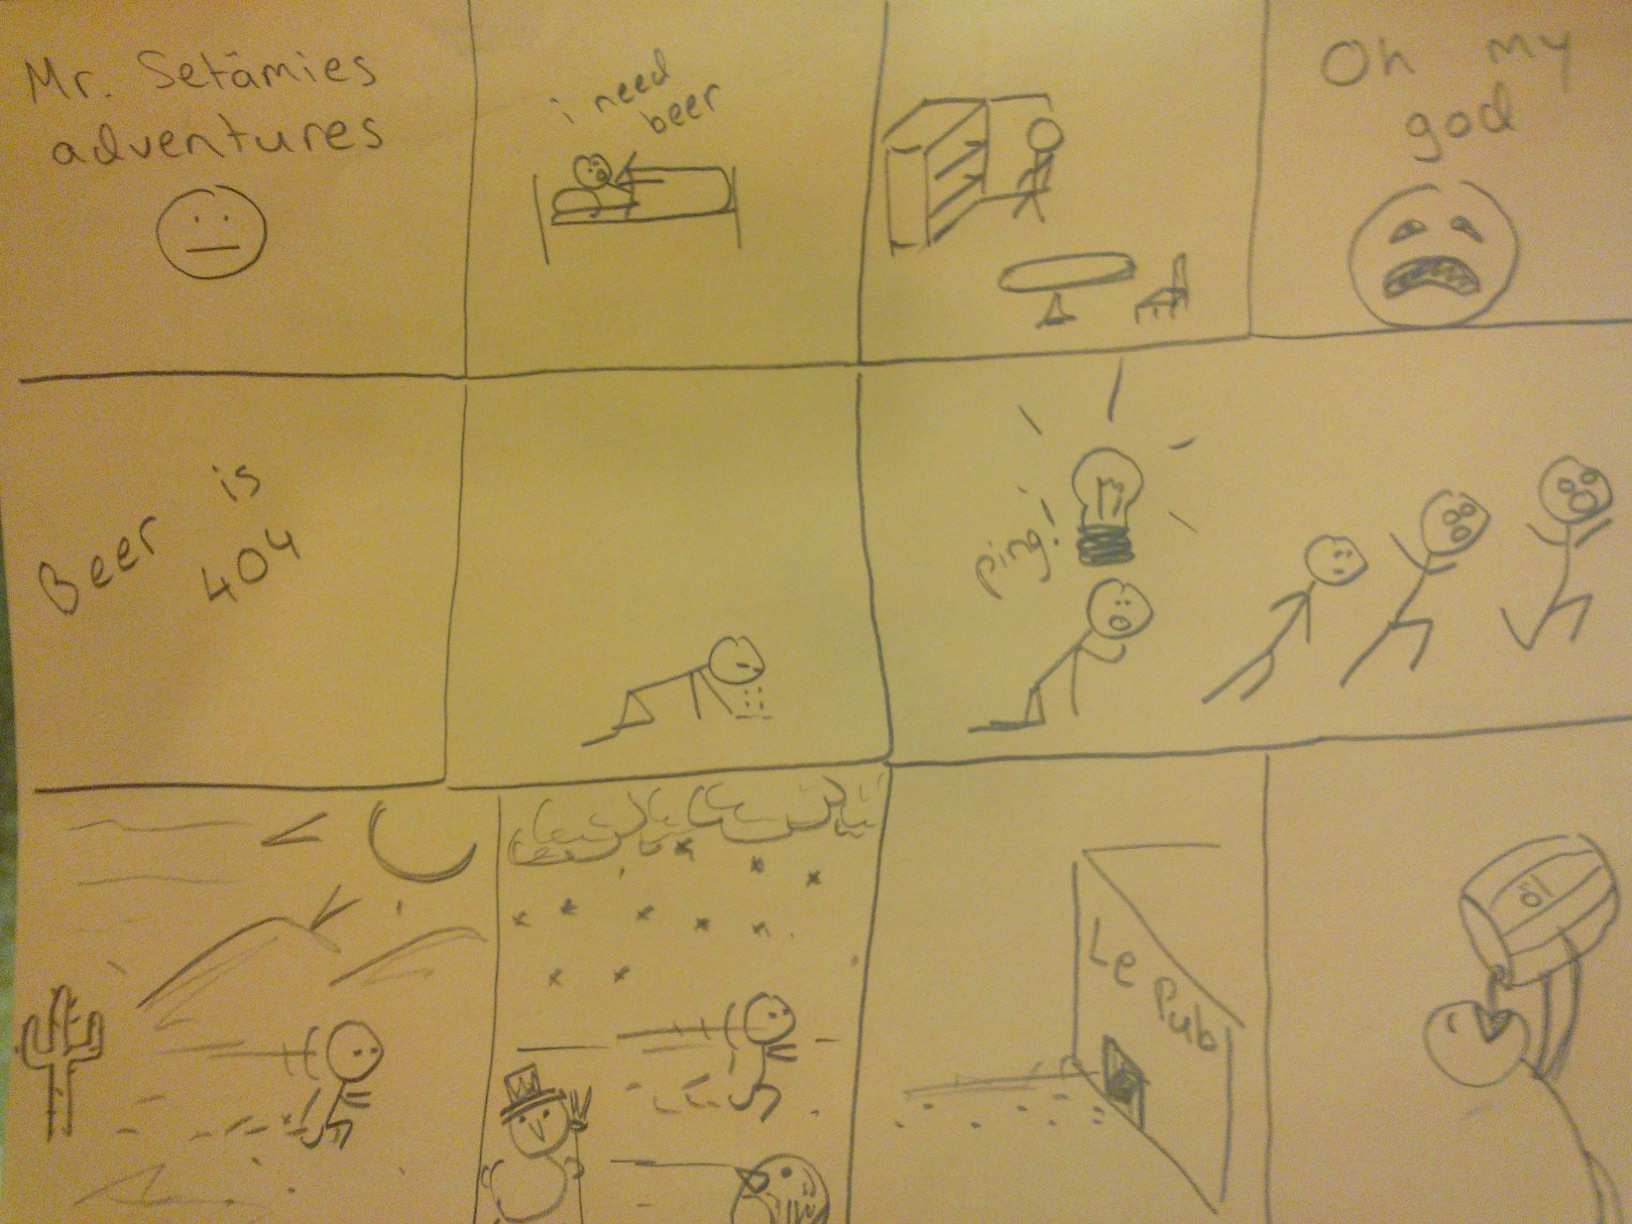 Mr. Setämies
adventures
i need
beer
Oh my
god
Beer is
404
ping!
Le Pub
öl